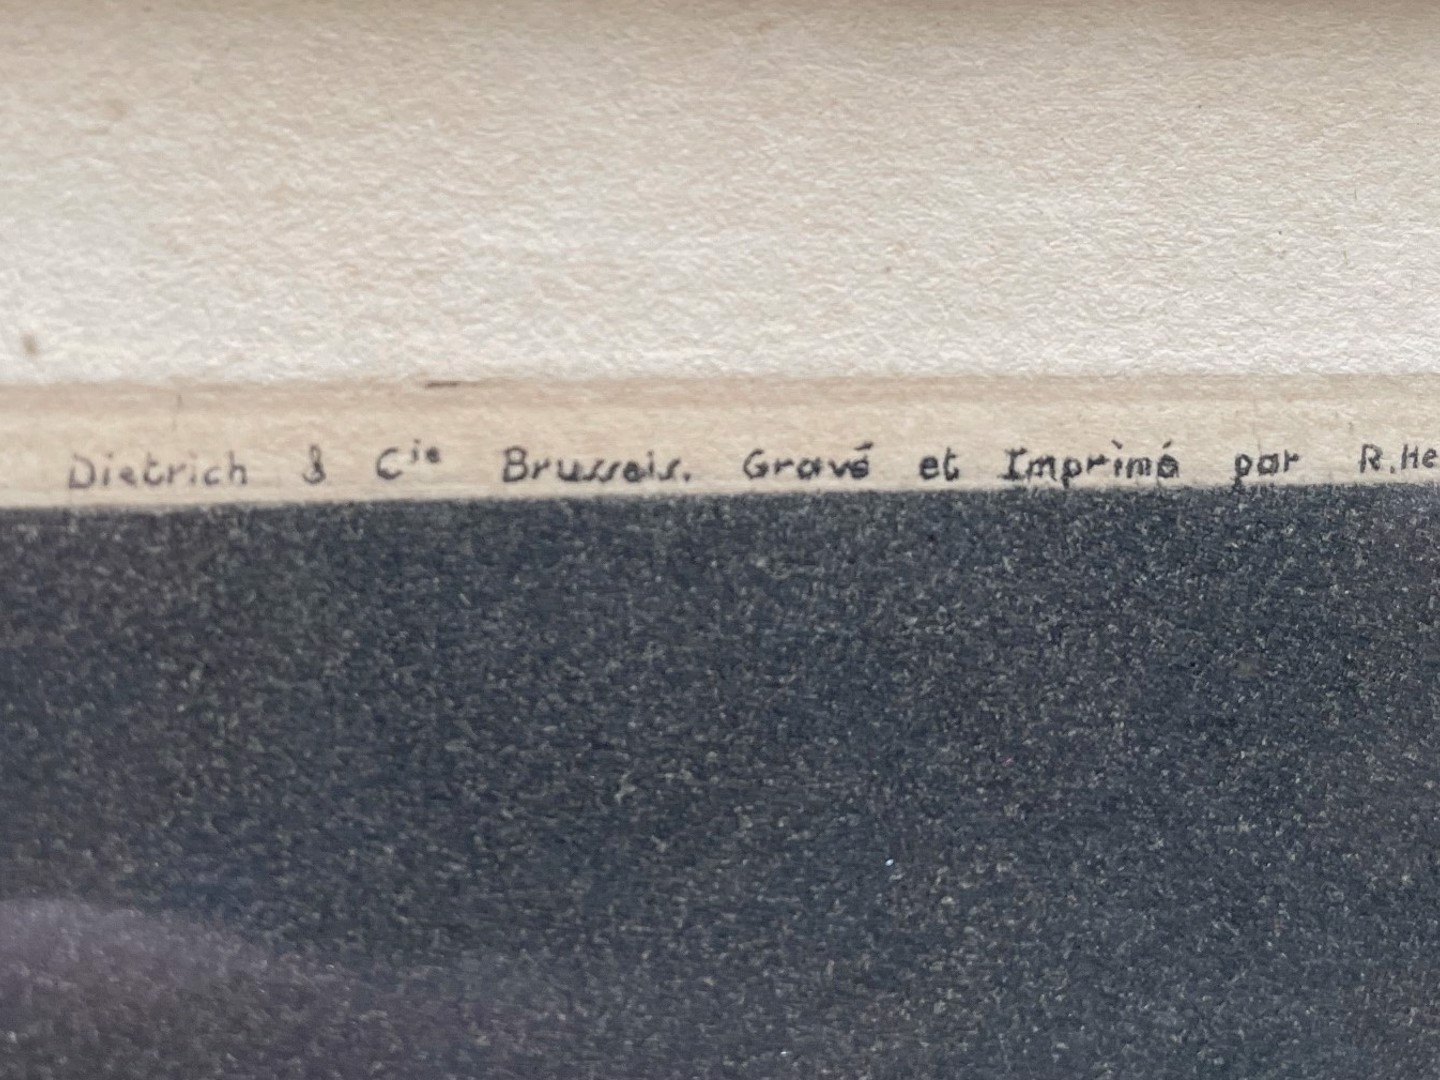 Dietrich & Cie Brussels. Gravé et Imprimé par R.He